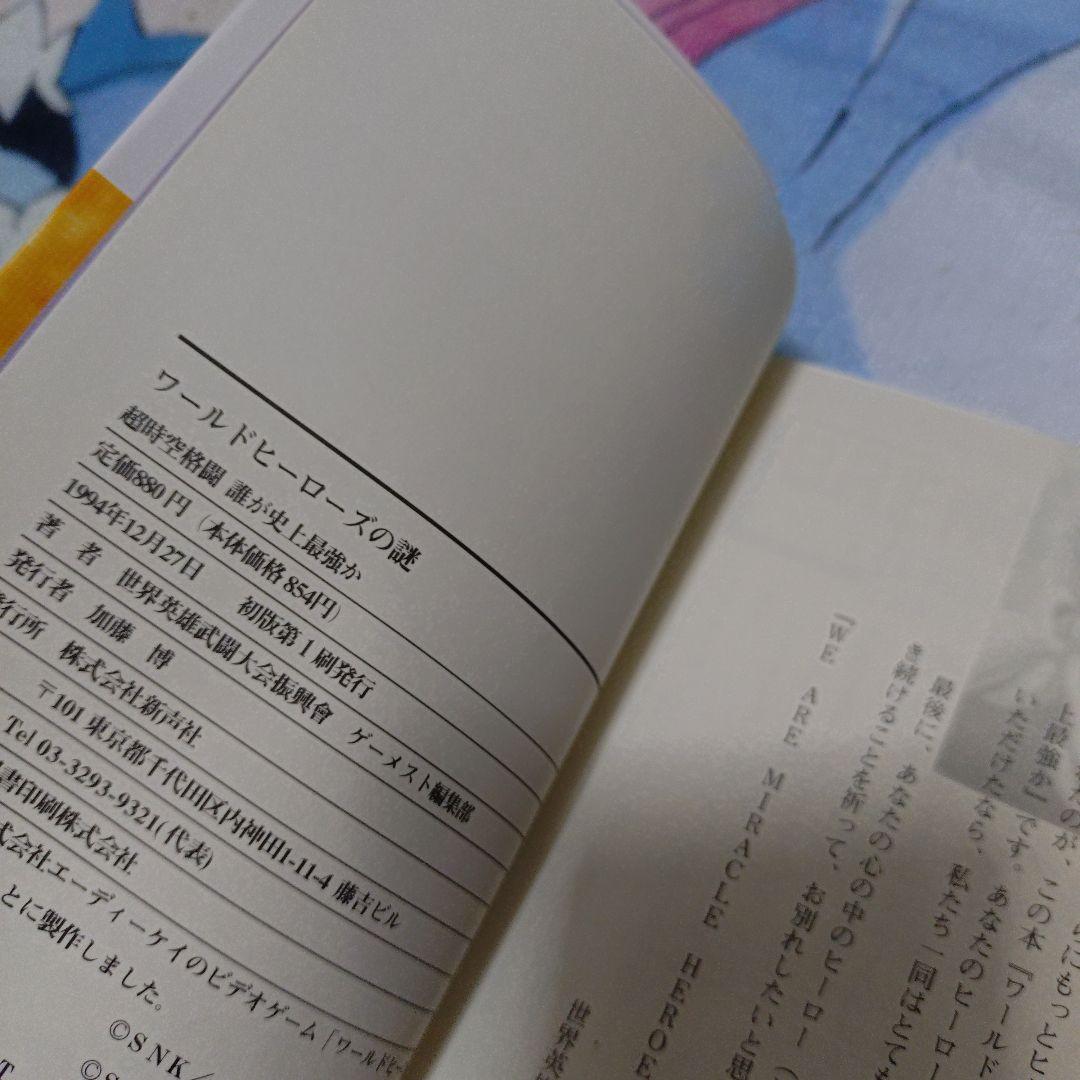 ワールドヒーローズの謎
超時空格闘 誰が史上最強か
定価880円（本体価格854円）
1994年12月27日 初版第1刷発行
著 者 世界英雄武闘大会振興會 ゲーメスト編集部
発行者 加藤 博
発行所 株式会社新声社
〒101 東京都千代田区内神田1-11-4 藤吉ビル
Tel 03-3293-9321(代表)
書印刷株式会社
式会社エーディーケイのビデオゲーム「ワールドヒー
とに製作しました。
©SNK/
©S
らにもっとヒ
が、この本『ワールド
上最強か』です。あなたのヒーロー
いただけたなら、私たち一同はとても
最後に、あなたの心の中のヒーロー
き続けることを祈って、お別れしたいと思
『WE ARE MIRACLE HEROE
世界英